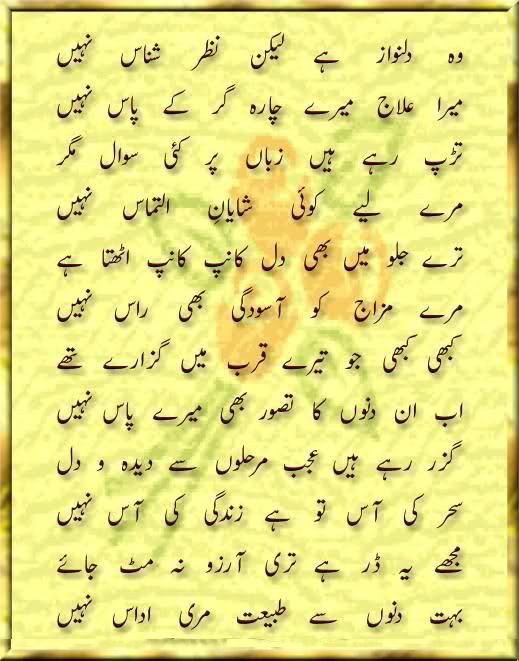 وہ دلنواز ہے لیکن نظر شناس نہیں
میرا علاج میرے چارہ گر کے پاس نہیں
تڑپ رہے ہیں زباں پر کئی سوال مگر
مرے لیے کوئی شایانِ التماس نہیں
ترے جلو میں بھی دل کانپ کانپ اٹھتا ہے
مرے مزاج کو آسودگی بھی راس نہیں
کبھی کبھی جو تیرے قرب میں گزارے تھے
اب ان دنوں کا تصور بھی میرے پاس نہیں
گزر رہے ہیں عجب مرحلوں سے دیدہ و دل
سحر کی آس تو ہے زندگی کی آس نہیں
مجھے یہ ڈر ہے تری آرزو نہ مٹ جائے
بہت دنوں سے طبیعت مری اداس نہیں